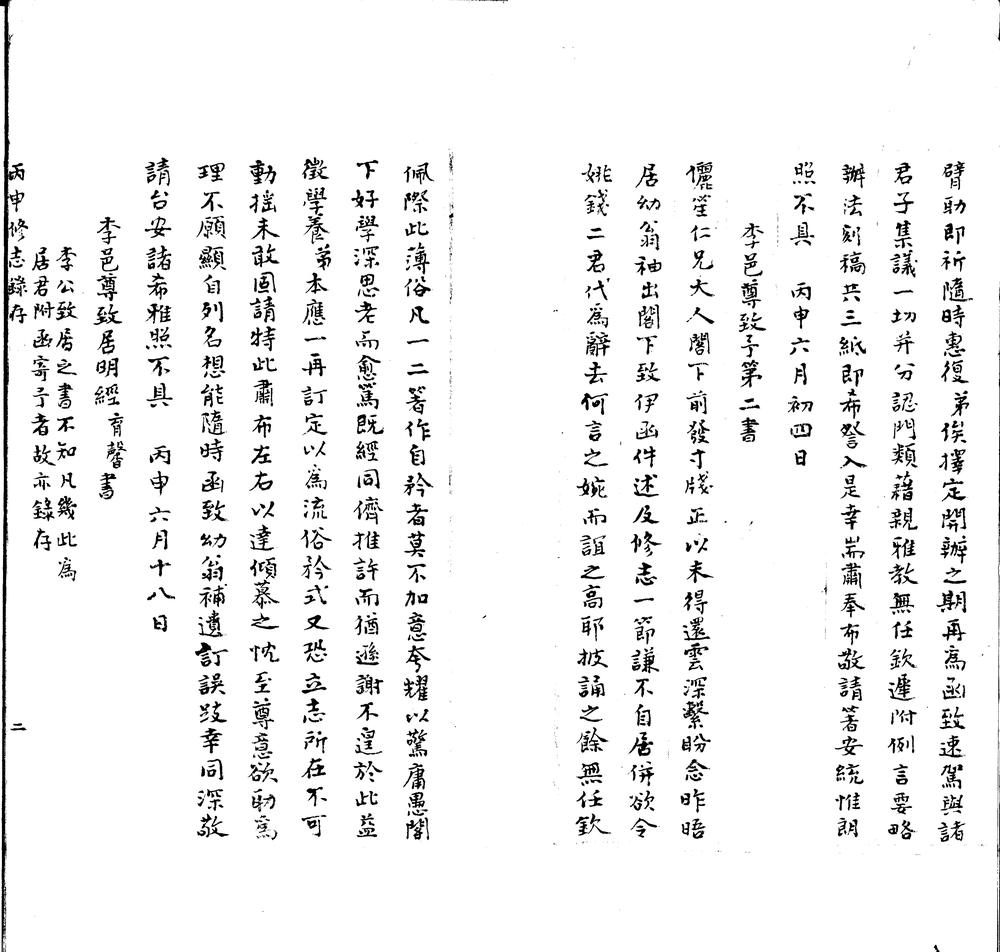 臂助即祈隨時惠復弟俟擇定開辦之期再爲函致速駕與諸
君子集議一切并分認門類藉親雅教無任欽遲附例言要略
辦法刻稿共三紙即希詧入是幸耑肅奉布敬請箸安統惟朗
照不具　丙申六月初四日
李邑尊致予第二書
儷笙仁兄大人閣下前發寸牋正以未得還雲深繫盼念昨晤
居幼翁袖出閣下致伊函件述及修志一節謙不自居併欲令
姚錢二君代爲辭去何言之婉而誼之高耶披誦之餘無任欽
佩際此薄俗凡一二著作自矜者莫不加意夸耀以驚庸愚閣
下好學深思老而愈篤既經同儕推許而猶遜謝不遑於此益
徵學養弟本應一再訂定以爲流俗矜式又恐立志所在不可
動搖未敢固請特此肅布左右以達傾慕之忱至尊意欲助爲
理不願顯自列名想能隨時函致幼翁補遺訂誤跂幸同深敬
請台安諸希雅照不具　丙申六月十八日
李邑尊致居明經育馨書
李公致居之書不知凡幾此爲
居君附函寄予者故亦錄存
丙申修志錄存
二